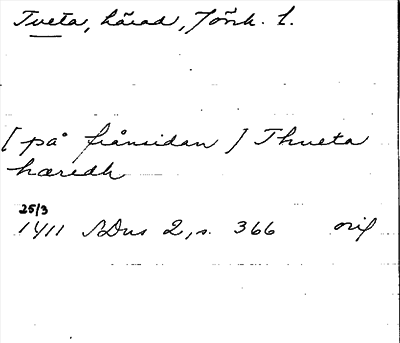 Tveta, härad, Jönk. l.
[på frånsidan] Thueta
hæredh
25/3
1411 SDns 2, s. 366 orig